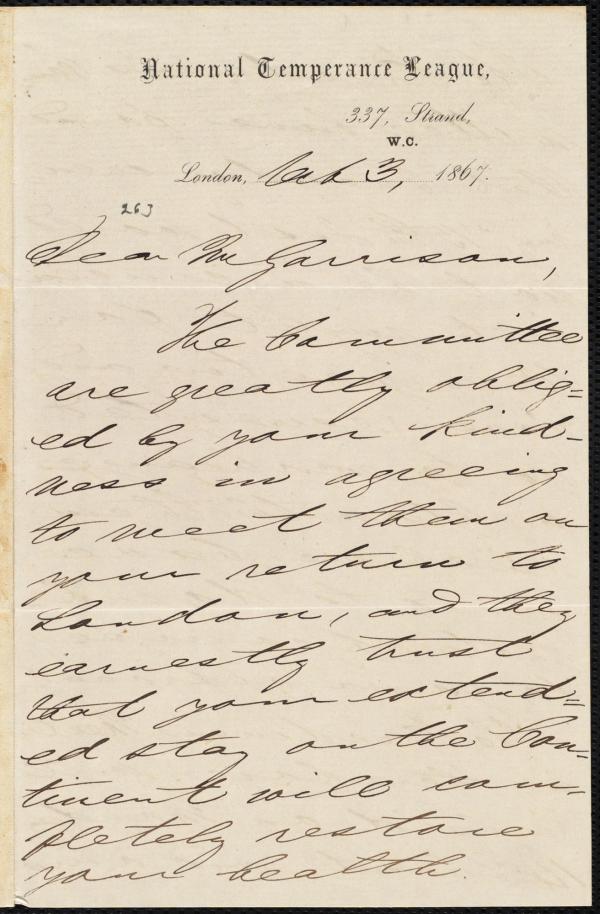 National Temperance League,
337, Strand,
W.C.
London, Oct 3, 1867.
263
Dear Mr Garrison,
The Committee
are greatly oblig=
ed by your kind-
ness in agreeing
to meet them on
your return to
London, and they
earnestly trust
that your extend=
ed stay on the Con-
tinent will com-
pletely restore
your health.